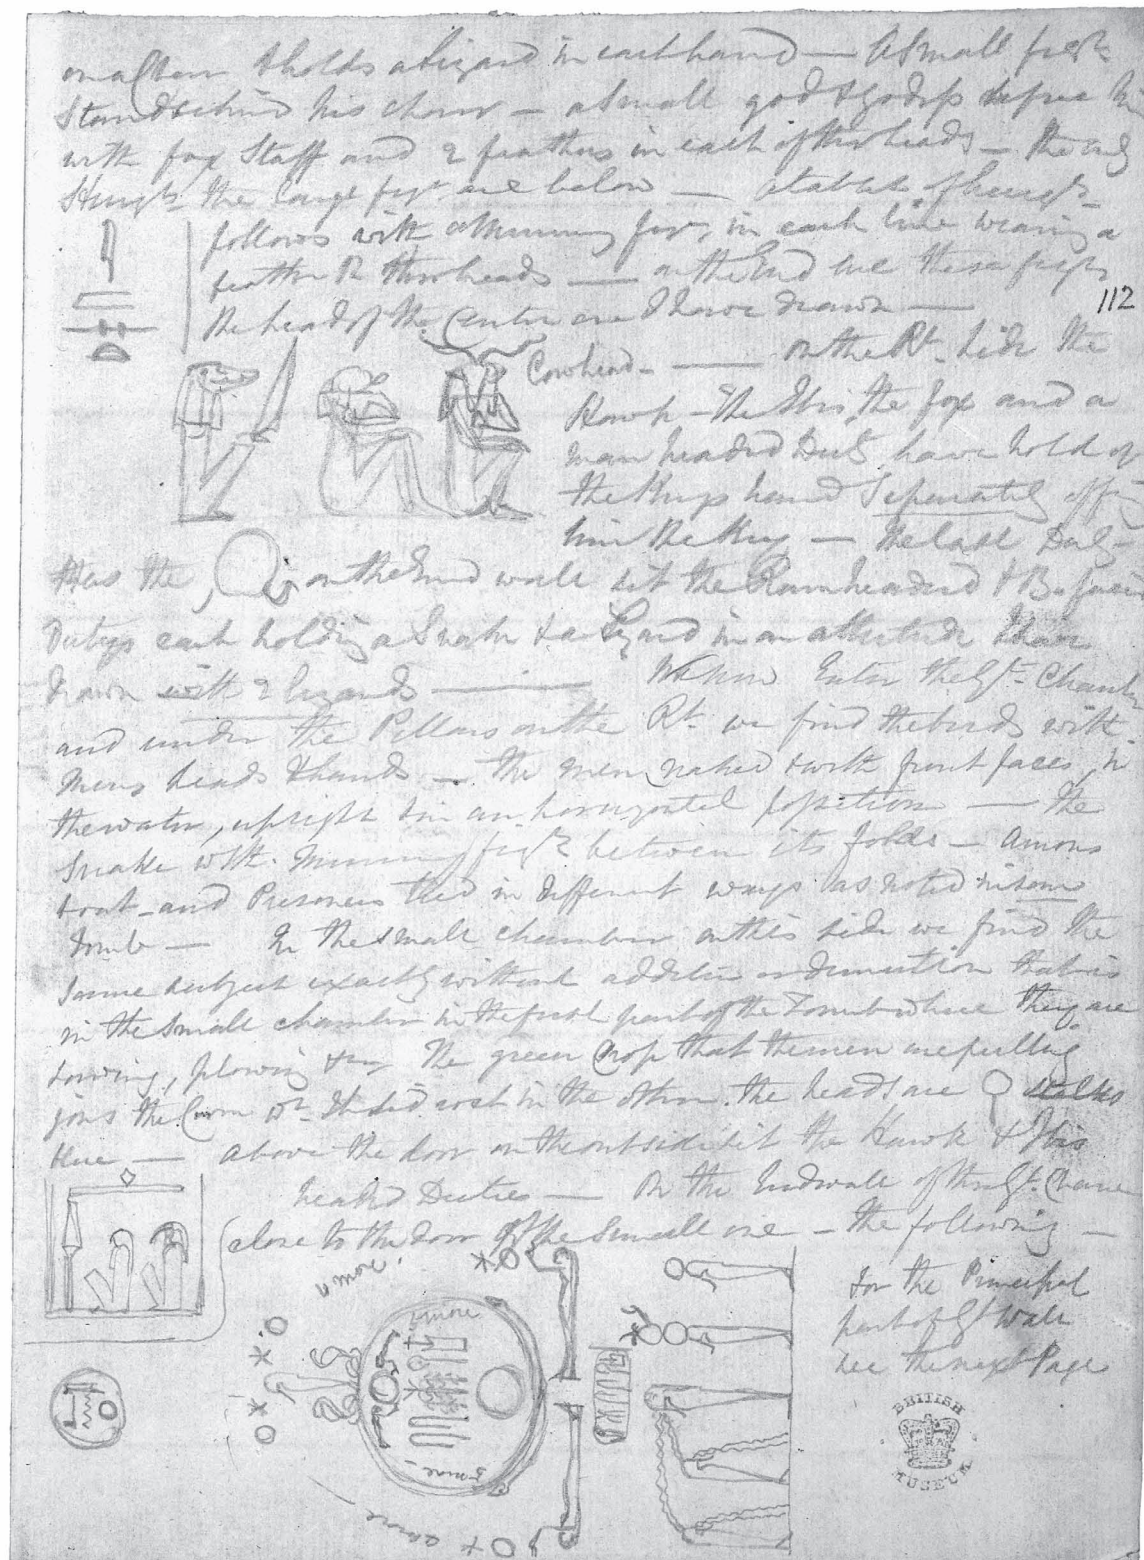 on a Chair & holds a Lizard in each hand — A small figr
Stands behind his chair — a small god & Godess before him
with fox Staff and 2 feathers in each of their heads — the
the large figr are below — a tablet of
follows with a Mummy figr, in each line wearing a
feather on their heads — on the End are these figrs
the head of the Center one I have drawn —
112
Cowhead — on the Rt. side the
Hawk — the Ibis, the fox and a
man headed Deity have hold of
the Kings hand separately offering
him the Key — the last Deity
Has the on the End wall sit the Ramheaded & Bu
Dietys each holding a Snake & a Lizard in an attitude I have
drawn with 2 lizards — We now Enter the Gt. Chamber
and under the Pillars on the Rt. we find the birds with
Mens heads & hands — the men naked & with front faces in
the water, upright & in an horizontal position — the
Snake with Mummy figrs between its folds —
boat — and Prisoners tied in different ways as noted in
Tomb — In the small chamber on this side we find the
same subject exactly without addition or diminution that is
in the small chamber in the first part of the Tomb where they are
sowing, plowing &c — The green Crop that the men are pulling
joins the Corn in the other. the heads are stalks
blue — above the door on the outside sit the Hawk & Ibis
headed Deities — On the End wall of this Gt. Chamber
close to the door of the small one — the following —
4 more
5 more
5 more
same
for the Principal
part of Gt Wall
see the next Page
BRITISH
MUSEUM